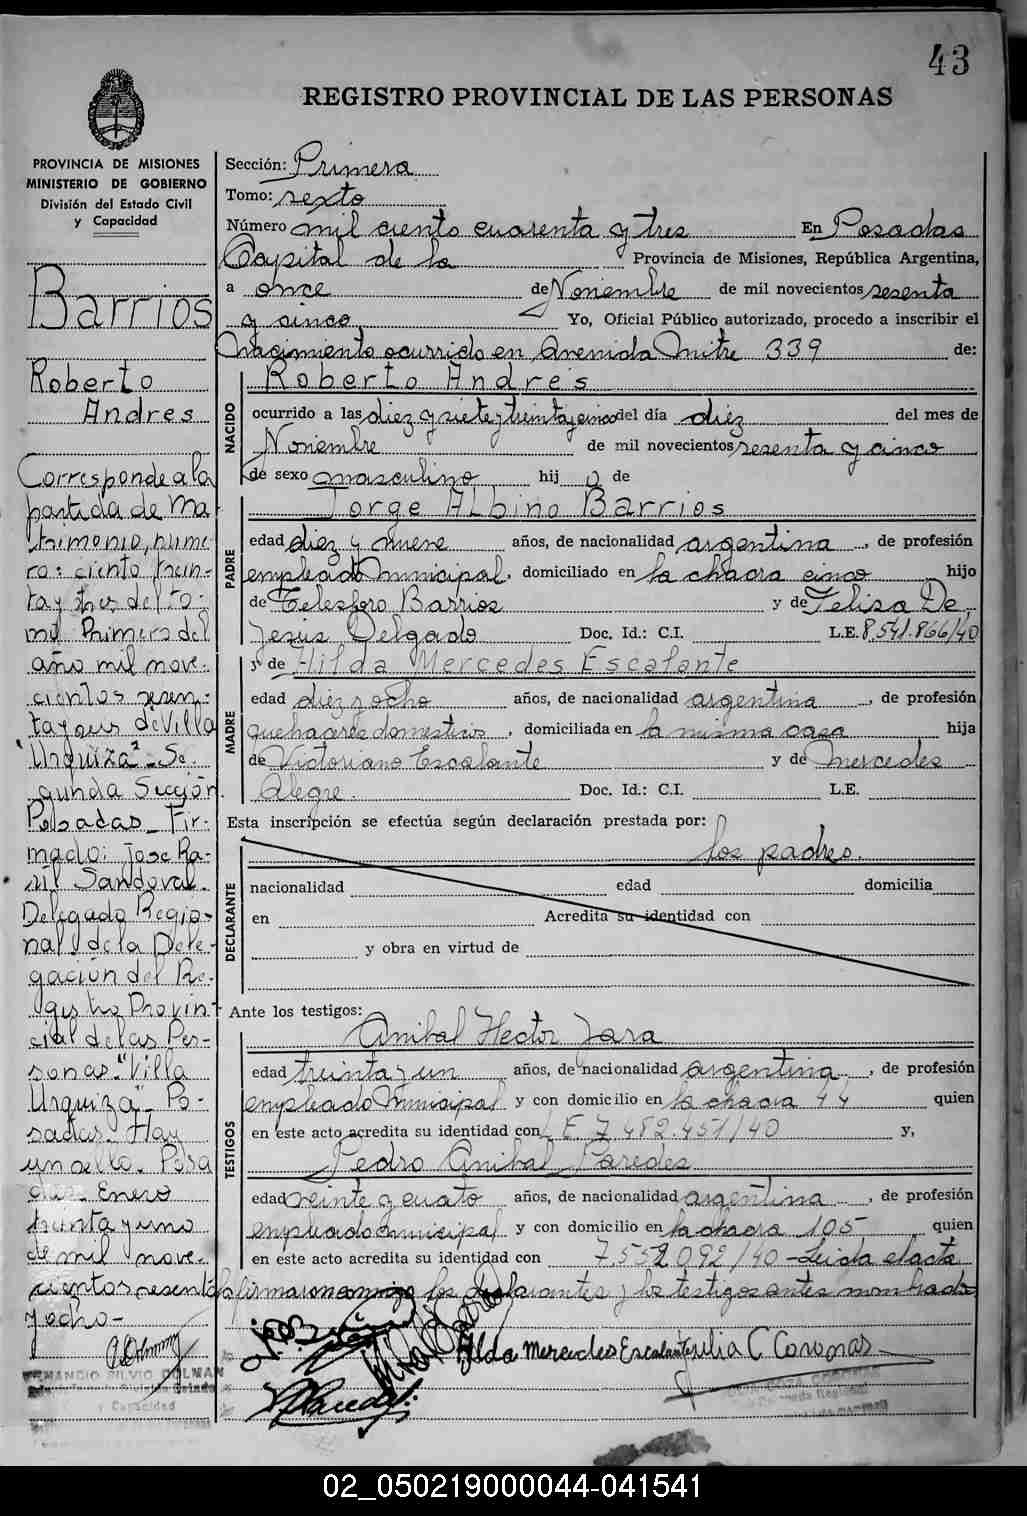 43
REGISTRO PROVINCIAL DE LAS PERSONAS
PROVINCIA DE MISIONES
MINISTERIO DE GOBIERNO
División del Estado Civil
y Capacidad
Barrios
Roberto
Andres
Corresponde a la
partida de Ma
trimonio, núme
ro: ciento trein-
ta y tres del To-
mo Primero del
año mil nove-
cientos sesen-
ta y seis de Villa
"Urquiza" - Se
gunda Sección
Posadas - Fir-
mado: Jose Ra-
úl Sandoval.
Delegado Regio-
nal de la Dele-
gación del Re-
gistro Provin-
cial de las Per-
sonas "Villa
Urquiza" - Po-
sadas. Hay
un sello. Posa
das Enero
treinta y uno
de mil nove-
cientos sesenta
y ocho -
Sección: Primera
Tomo: sexto
Número mil ciento cuarenta y tres En Posadas
Capital de la Provincia de Misiones, República Argentina,
a once de Noviembre de mil novecientos sesenta
y cinco Yo, Oficial Público autorizado, procedo a inscribir el
nacimiento ocurrido en Avenida Mitre 339 de:
NACIDO
Roberto Andres
ocurrido a las diez y siete y treinta y cinco del día diez del mes de
Noviembre de mil novecientos sesenta y cinco
de sexo masculino hij o de
PADRE
Jorge Albino Barrios
edad diez y nueve años, de nacionalidad argentina, de profesión
empleado Municipal, domiciliado en la chacra cinco hijo
de Telesforo Barrios y de Felisa De
Jesús Delgado Doc. Id.: C.I. L.E. 8.541.866/40
MADRE
y de Hilda Mercedes Escalante
edad diez y ocho años, de nacionalidad argentina, de profesión
quehaceres domesticos, domiciliada en la misma casa hija
de Victoriano Escalante y de Mercedes
Alegre. Doc. Id.: C.I. L.E.
Esta inscripción se efectúa según declaración prestada por:
los padres.
DECLARANTE
nacionalidad edad domicilia
en Acredita su identidad con
y obra en virtud de
Ante los testigos:
TESTIGOS
Anibal Hector Jara
edad treinta y un años, de nacionalidad argentina, de profesión
empleado Municipal y con domicilio en la chacra 44 quien
en este acto acredita su identidad con L E 7.482.451/40 y,
Pedro Anibal Paredes
edad veinte y cuatro años, de nacionalidad argentina, de profesión
empleado municipal y con domicilio en la chacra 105 quien
en este acto acredita su identidad con 7.552.092/40 - Leida el acta
la firman conmigo los declarantes y los testigos antes nombrados
Hilda Mercedes Escalante
Julia C Coronas
02_050219000044-041541